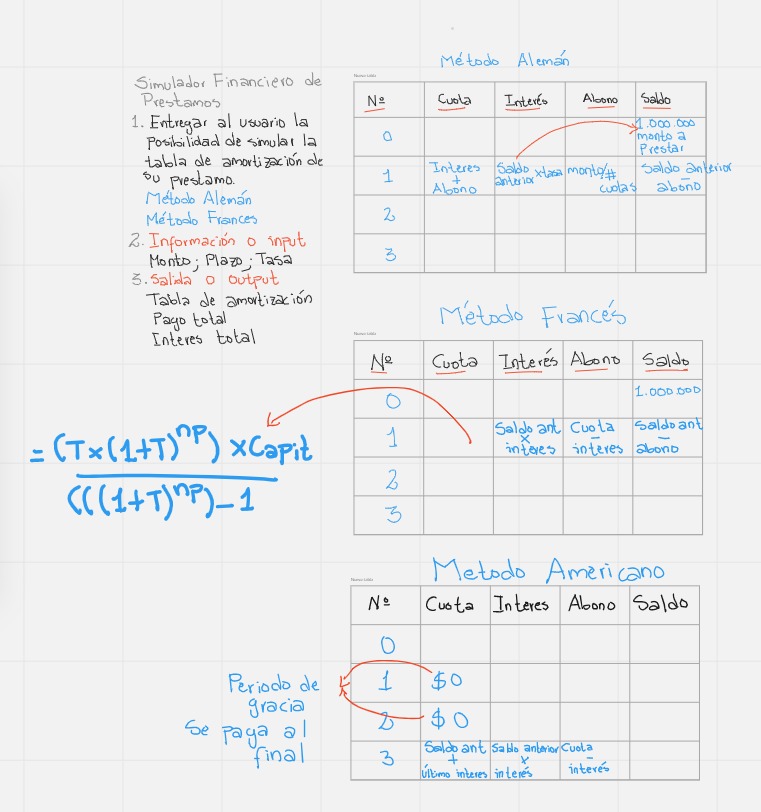 Simulador Financiero de
Prestamos
1. Entregar al usuario la
Posibilidad de simular la
tabla de amortización de
su prestamo.
Método Alemán
Método Frances
2. Información o input
Monto; Plazo; Tasa
3. Salida o output
Tabla de amortización
Pago total
Interes total
Método Alemán
Nº Cuota Interés Abono Saldo
0 1.000.000 monto a Prestar
1 Interes + Abono Saldo anterior x tasa monto/# cuotas Saldo anterior - abono
2
3
Método Francés
Nº Cuota Interés Abono Saldo
0 1.000.000
1 Saldo ant x interes Cuota - interes Saldo ant - abono
2
3
= (Tx(1+T)^np) xCapit
(((1+T)^np)-1
Metodo Americano
Nº Cuota Interes Abono Saldo
0
1 $0
2 $0
3 Saldo ant + Último interes Saldo anterior x interés Cuota - interés
Periodo de
gracia
Se paga al
final